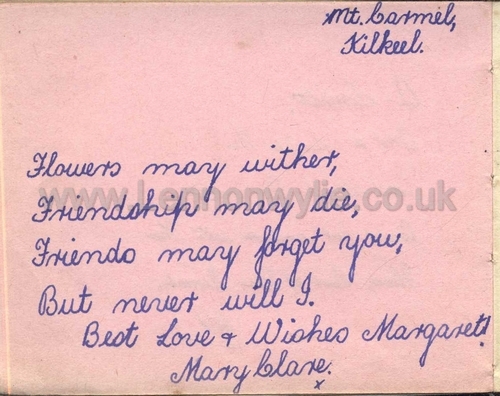 Mt. Carmel,
Kilkeel.
Flowers may wither,
www.Lennonwylie.co.uk
Friendship may die,
Friends may forget you,
But never will I.
Best Love & Wishes Margaret!
Mary Clare.
x